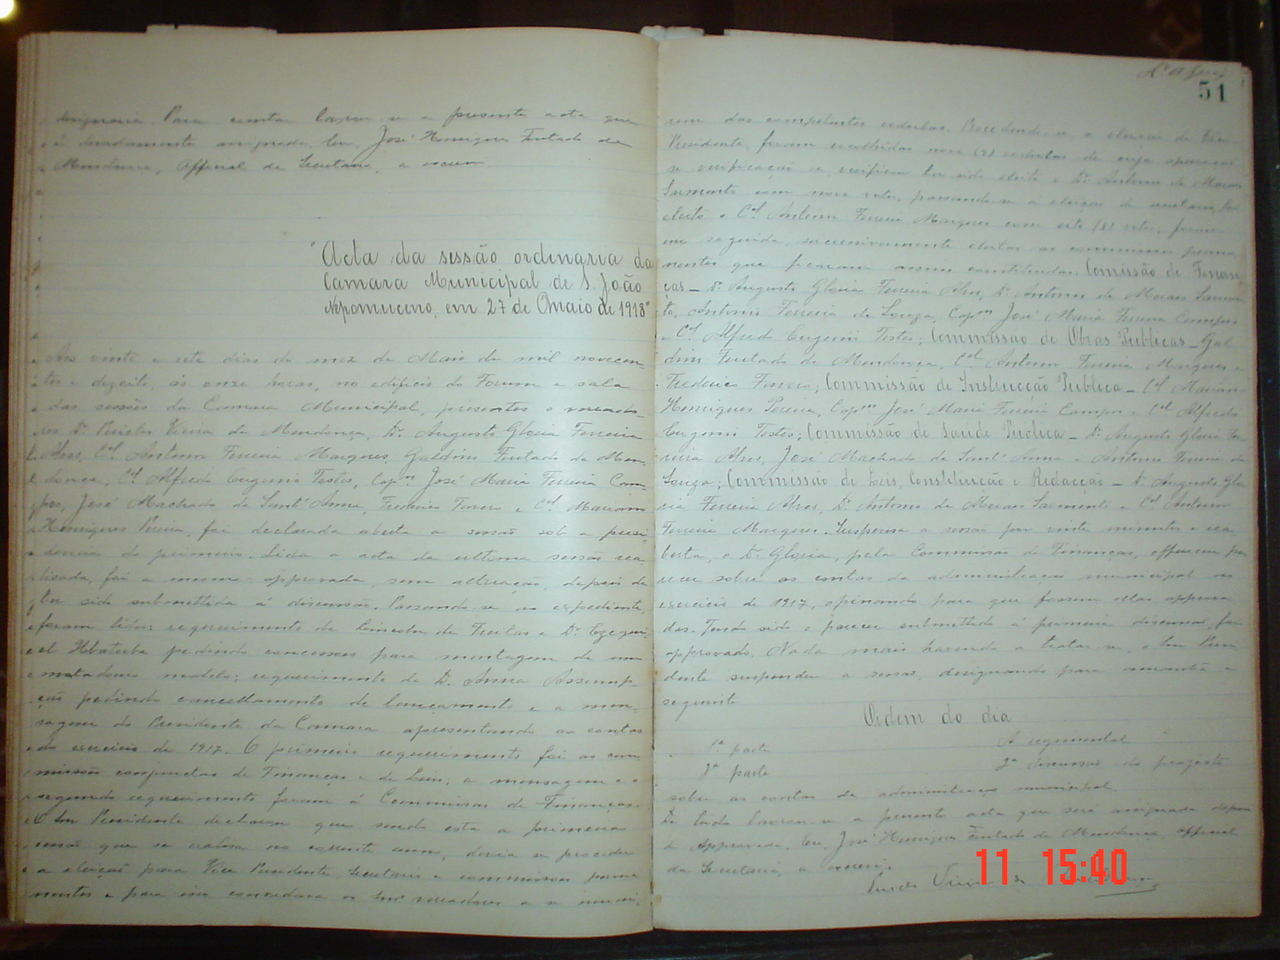 Para constar lavrou-se a presente acta que
é devidamente assignada. Eu, José Henriques Furtado de
Mendonça, Official da Secretaria, a escrevi
"Acta da sessão ordinaria da
Camara Municipal de S. João
Nepomuceno, em 27 de Maio de 1918"
Aos vinte e sete dias do mez de Maio de mil novecen-
tos e dezoito, ás onze horas, no edificio do Forum e sala
das sessões da Camara Municipal, presentes o vereado-
res Dr. Pericles Vieira de Mendonça, Dr. Augusto Gloria Ferreira
Alves, Cel. Antonio Ferreira Marques, Galdino Furtado de Men-
donça, Cel. Alfredo Eugenio Testes, Capm José Maria Ferreira Cam-
pos, José Machado de Sant'Anna, Frederico Furero e Cel. Mariano
Henriques Pereira, foi declarada aberta a sessão sob a presi-
dencia do primeiro. Lida a acta da ultima sessão rea-
lisada, foi a mesma approvada, sem alteração, depois de
ter sido submettida á discussão. Passando-se ao expediente,
foram lidos: requerimento de Lincoln de Freitas e Dr. Ezequi-
el pedindo concessão para montagem de um
matadouro modelo; requerimento de D. Anna Assump-
ção pedindo cancellamento de lançamento e a men-
sagem do Presidente da Camara apresentando as contas
do exercicio de 1917. O primeiro requerimento foi ás com-
missões conjunctas de Finanças e de Leis; a mensagem e o
segundo requerimento foram á Commissão de Finanças.
O Snr. Presidente declarou que sendo esta a primeira
sessão que se realisa no corrente anno, devia se proceder
a eleição para Vice Presidente, Secretario e commissões perma-
nentes e para isso convidava os snrs. vereadores a se muni-
51
rem das competentes cedulas. Procedendo-se a eleição de Vice
Presidente, foram recolhidas nove (9) cedulas de cuja apuração
se verificou ter sido eleito o Dr. Antonio de Moraes
Sarmento com nove votos, passando-se á eleição de secretario, foi
eleito o Cel. Antonio Ferreira Marques com oito (8) votos, foram
em seguida, successivamente eleitas as commissões perma-
nentes que ficaram assim constituidas: Comissão de Finan-
ças - Dr. Augusto Gloria Ferreira Alves, Dr. Antonio de Moraes Sarmen-
to, Antonio Ferreira de Souza, Capm José Maria Ferreira Campos
e Cel. Alfredo Eugenio Testes; Commissão de Obras Publicas - Gal-
dino Furtado de Mendonça, Cel. Antonio Ferreira Marques e
Frederico Furero; Commissão de Instrucção Publica - Cel. Mariano
Henriques Pereira, Capm José Maria Ferreira Campos e Cel. Alfredo
Eugenio Testes; Commissão de Saúde Publica - Dr. Augusto Gloria Fer-
reira Alves, José Machado de Sant'Anna e Antonio Ferreira de
Souza; Commissão de Leis, Constituição e Redacção - Dr. Augusto Glo-
ria Ferreira Alves, Dr. Antonio de Moraes Sarmento e Cel. Antonio
Ferreira Marques. Suspensa a sessão por vinte minutos e rea-
berta, o Dr. Gloria, pela Commissão de Finanças, offerece pa-
recer sobre as contas da administração municipal no
exercicio de 1917, opinando para que fossem ellas approva-
das. Tendo sido o parecer submettido á primeira discussão, foi
approvado. Nada mais havendo a tratar-se, o Snr. Presi-
dente suspendeu a sessão, designando para amanhã a
seguinte
Ordem do dia
1ª parte A regimental
2ª parte 2ª discussão do projecto
sobre as contas da administração municipal
De tudo lavrou-se a presente acta que será assignada depois
de approvada. Eu, José Henriques Furtado de Mendonça, official
da Secretaria, a escrevi.
11 15:40